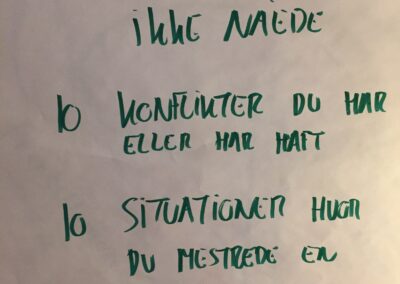 ikke NÅEDE
10 KONFLIKTER DU HAR
ELLER HAR HAFT
10 SITUATIONER HVOR
DU MESTREDE EN